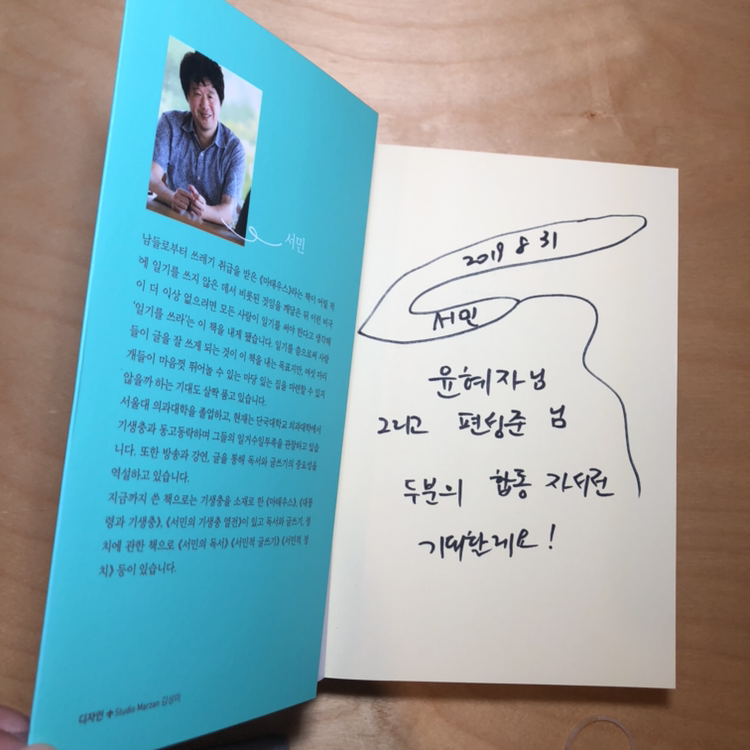 서민
남들로부터 쓰레기 취급을 받은 《마태우스》라는 책이 어릴 적
에 일기를 쓰지 않은 데서 비롯된 것임을 깨달은 뒤 이런 비극
이 더 이상 없으려면 모든 사람이 일기를 써야 한다고 생각해
'일기를 쓰라'는 이 책을 내게 됐습니다. 일기를 씀으로써 사람
들이 글을 잘 쓰게 되는 것이 이 책을 내는 목표지만, 여섯 마리
개들이 마음껏 뛰어놀 수 있는 마당 있는 집을 마련할 수 있지
않을까 하는 기대도 살짝 품고 있습니다.
서울대 의과대학을 졸업하고, 현재는 단국대학교 의과대학에서
기생충과 동고동락하며 그들의 일거수일투족을 관찰하고 있습
니다. 또한 방송과 강연, 글을 통해 독서와 글쓰기의 중요성을
역설하고 있습니다.
지금까지 쓴 책으로는 기생충을 소재로 한 《마태우스》, 《대통
령과 기생충》, 《서민의 기생충 열전》이 있고 독서와 글쓰기, 정
치에 관한 책으로 《서민의 독서》 《서민적 글쓰기》 《서민적 정
치》 등이 있습니다.
디자인 Studio Marzan 김성미
2019 8 31
서민
윤혜자님
그리고 편성준 님
두분의 합동 자서전
기대할게요!